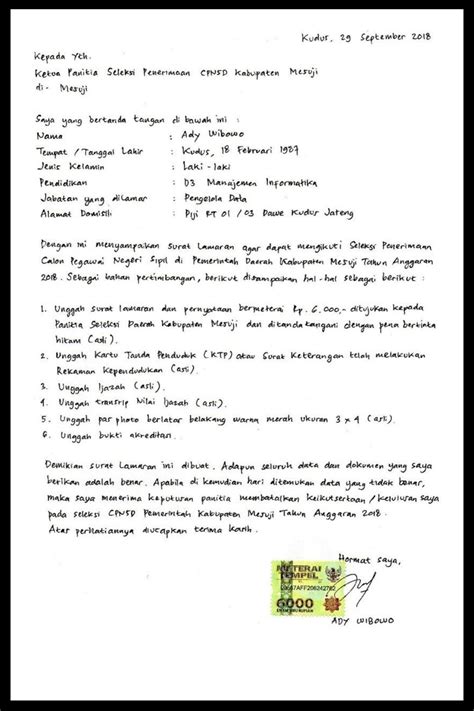 Kudus, 29 September 2018
Kepada Yth.
Ketua Panitia Seleksi Penerimaan CPNSD Kabupaten Mesuji
di - Mesuji
Saya yang bertanda tangan di bawah ini :
Nama : Ady Wibowo
Tempat / Tanggal Lahir : Kudus, 18 Februari 1987
Jenis Kelamin : Laki - laki
Pendidikan : D3 Manajemen Informatika
Jabatan yang dilamar : Pengelola Data
Alamat Domisili : Piji RT 01 / 03 Dawe Kudus Jateng
Dengan ini menyampaikan surat lamaran agar dapat mengikuti Seleksi Penerimaan
Calon Pegawai Negeri Sipil di Pemerintah Daerah Kabupaten Mesuji Tahun Anggaran
2018. Sebagai bahan pertimbangan, berikut disampaikan hal-hal sebagai berikut :
1. Unggah surat lamaran dan pernyataan bermeterai Rp. 6.000,- ditujukan kepada
Panitia Seleksi Daerah Kabupaten Mesuji dan ditandatangani dengan pena bertinta
hitam (asli).
2. Unggah Kartu Tanda Penduduk (KTP) atau Surat Keterangan telah melakukan
Rekaman Kependudukan (asli).
3. Unggah Ijazah (asli).
4. Unggah transrip Nilai Ijazah (asli).
5. Unggah pas photo berlatar belakang warna merah ukuran 3 x 4 (asli).
6. Unggah bukti akreditasi.
Demikian surat lamaran ini dibuat. Adapun seluruh data dan dokumen yang saya
berikan adalah benar. Apabila di kemudian hari ditemukan data yang tidak benar,
maka saya menerima keputusan panitia membatalkan keikutsertaan / kelulusan saya
pada seleksi CPNSD Pemerintah Kabupaten Mesuji Tahun Anggaran 2018.
Atas perhatiannya diucapkan terima kasih.
Hormat saya,
METERAI
TEMPEL
6000
ENAM RIBU RUPIAH
ADY WIBOWO